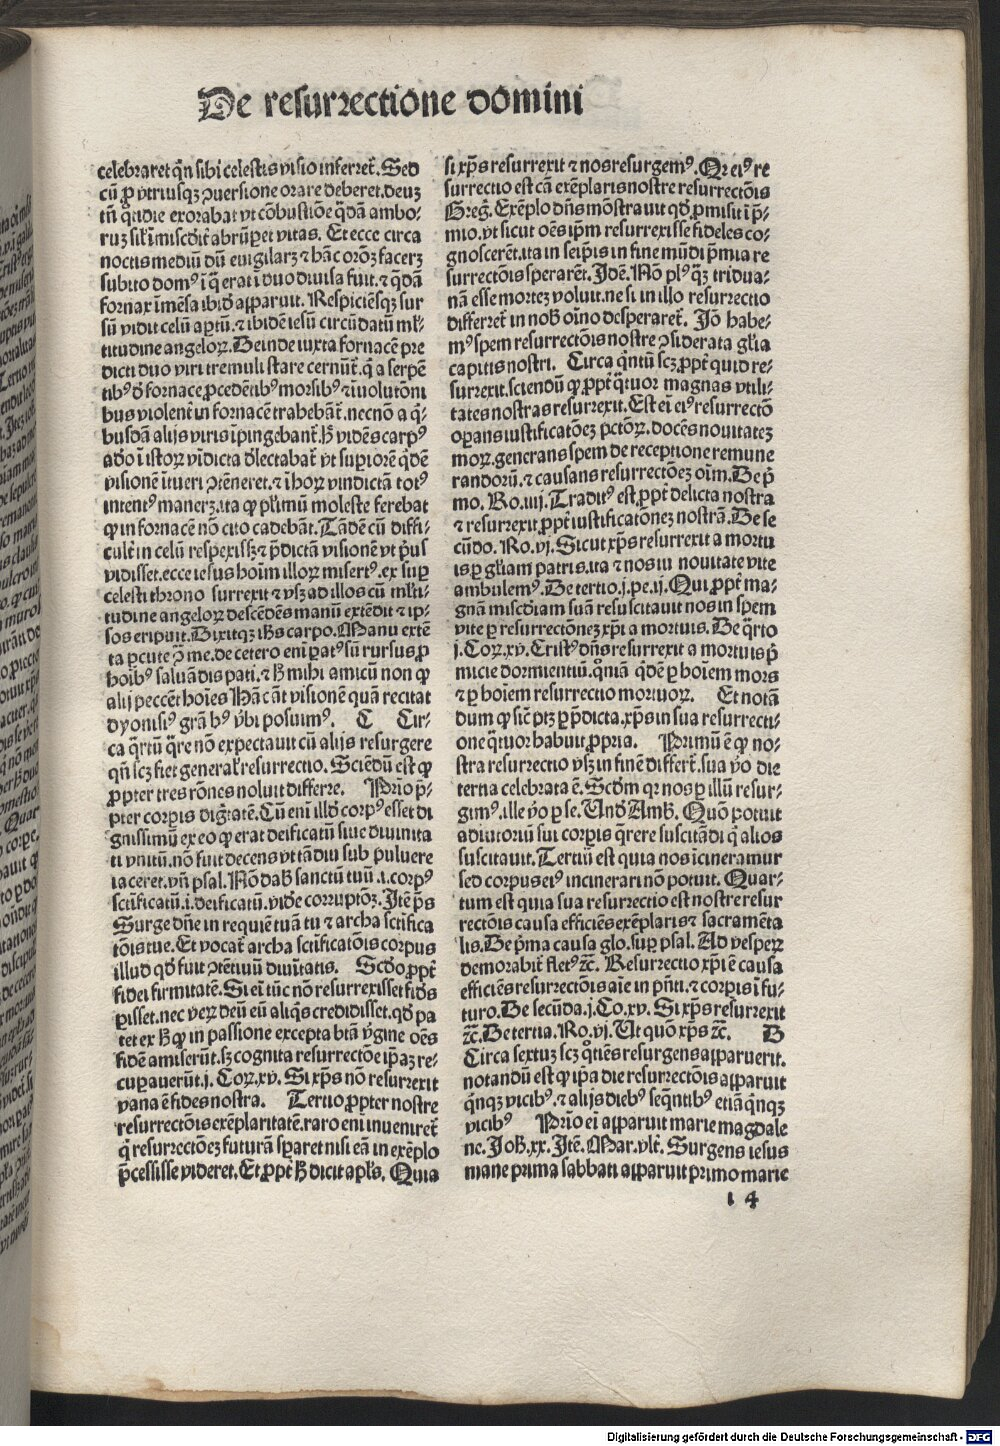 De resurrectione domini
celebraret qñ sibi celestis visio inferret̃. Sed
cũ ꝓ vtriusqꝫ ↄuersione orare deberet. deuꝫ
tñ qͥtidie exorabat vt cõbustiõe q̃dã ambo⸗
ruꝫ sil̃ ĩmisẽdit̃ abrũꝑet vitas. Et ecce circa
noctis mediũ dũ euigilarꝫ ⁊ hãc orõꝫ facerꝫ
subito domꝰ ĩ q̃ erat ĩ duo diuisa fuit. ⁊ q̃dã
fornax ĩmẽsa ibid̃ apparuit. Respiciẽsqꝫ sur
sũ vidit celũ aptũ. ⁊ ibidẽ iesũ circũdatũ ml̃⸗
titudine angeloꝝ. Deinde iuxta fornacẽ pre
dicti duo viri tremuli stare cernũt̃. q̃ a serpẽ
tibꝰ d̃ fornace ꝓcedẽtibꝰ morsibꝰ ⁊ ĩuolutõni
bus violent̃ in fornacẽ trahebãt̃. necnõ a q̃⸗
busdã alijs viris ĩpingebant̃. H̃ vidẽs carpꝰ
adeo ĩ istoꝝ vĩdicta d̃lectabat̃ vt superiorẽ q̃dẽ
visionẽ ĩtueri ↄtẽneret. ⁊ ĩ hoꝝ vindictam totꝰ
intentꝰ manerꝫ. ita ꝙ plͥimũ moleste ferebat
ꝙ in fornacẽ nõ cito cadebãt̃. Tãdẽ cũ diffi⸗
cult̃ in celũ respexissꝫ ⁊ p̃dictã visionẽ vt pͥus
vidisset. ecce iesus hoĩm illoꝝ misertꝰ. ex suꝑ
celesti throno surrexit ⁊ vsqꝫ ad illos cũ ml̃ti⸗
tudine angeloꝝ descẽdẽs manũ extẽdit ⁊ ip⸗
sos eripuit. Dixitqꝫ ih̃s carpo. Manu extẽ
ta ꝑcute ↄ̃ me. de cetero eni paratꝰ sũ rursus ꝓ
hoĩbꝰ saluãdis pati. ⁊ h̃ mihi amicũ non ꝙ
alij peccẽt hoĩes Hãc aũt visionẽ quã recitat
dyonisiꝰ grã hꝰ v̾bi posuimꝰ. C Cir⸗
ca q̃rtũ q̃re nõ expectauit cũ alijs resurgere
qñ scꝫ fiet general̃ resurrectio. Sciẽdũ est ꝙ
ꝓpter tres rõnes noluit differre. Prĩo ꝓ⸗
pter corpis dignitatẽ. Cũ eni illd̃ corpꝰ esset di
gnissimũ ex eo ꝙ erat deificatũ siue diuinita
ti vnitũ. nõ fuit decens vt tãdiu sub puluere
iaceret. vñ psal. Nõ dab̃ sanctũ tuũ. i. corpꝰ
sctificatũ. i. deificatũ. vide corruptõꝫ. Itẽ p̃s
Surge dñe in requiẽ tuã tu ⁊ archa sctifica
tõis tue. Et vocat̃ archa sctificatõis corpus
illud qd̃ fuit ↄtẽtiuũ diuĩtatis. Scd̃o ꝓpt̃
fidei firmitatẽ. Si eĩ tũc nõ resurrexisset fid̃s
ꝑisset. nec veꝝ deũ eũ aliq̃s credidisset. qd̃ pa
tet ex h̃ ꝙ in passione excepta btã v̾gine oẽs
fidẽ amiserũt. sꝫ cognita resurrectõe ip̃aꝫ re⸗
cuꝑauerũt. j. Coꝝ. xv. Si xp̃s nõ resurrexit
vana ẽ fides nostra. Tertio ꝓpter nostre
resurrectõis exẽplaritatẽ. raro eni inueniret̃
q̃ resurrectõeꝫ futurã speraret nisi eã in exẽplo
p̃cessisse videret. Et ꝓpt̃ h̃ dicit apl̃s. Quia
si xp̃s resurrexit ⁊ nos resurgemꝰ. Qꝛ eiꝰ re
surrectio est cã exẽplaris nostre resurrectõis
Greg̃. Exẽplo dñs mõstrauit qd̃ ꝓmisit ĩ p̃⸗
mio. vt sicut oẽs ip̃m resurrexisse fideles co⸗
gnoscerẽt. ita in seip̃is in fine mũdi p̃mia re
surrectõis sperarẽt. Idẽ. Nõ plꝰ q̃ꝫ tridua⸗
nã esse morteꝫ voluit. ne si in illo resurrectio
differret̃ in nob̃ oĩno desperaret̃. Iõ habe⸗
mꝰ spem resurrectõis nostre ↄsiderata gl̃ia
capitis nostri. Circa qͥntũ scꝫ ꝓpt̃ quid re⸗
surrexit. sciendũ ꝙ ꝓpt̃ q̃tuor magnas vtili⸗
tates nostras resurrexit. Est eĩ eiꝰ resurrectõ
oꝑans iustificatõeꝫ pctoꝝ. docẽs nouitateꝫ
moꝝ. generans spem de receptione remune
randoꝝ. ⁊ causans resurrectõeꝫ oĩm. De p̃
mo. Ro. iiij. Traditꝰ est ꝓpt̃ delicta nostra
⁊ resurrexit ꝓpt̃ iustificatõneꝫ nostrã. De se
cũdo. Ro. vj. Sicut xp̃s resurrexit a mortu
is ꝑ gl̃iam patris. ita ⁊ nos in nouitate vite
ambulemꝰ. De tertio. j. pe. ij. Qui ꝓpt̃ ma⸗
gnã misc̃diam suã resuscitauit nos in spem
vite ꝑ resurrectõneꝫ xp̃i a mortuis. De q̃rto
j. Coꝝ. xv. Cristꝰ dñs resurrexit a mortuis p̃
micie dormientiũ. qm̃iã q̃dẽ ꝑ hoĩem mors
⁊ ꝑ hoĩem resurrectio mortuoꝝ. Et notã
dum ꝙ sic̃ ptꝫ ꝑ p̃dicta. xp̃s in sua resurrecti⸗
one q̃tuor habuit ꝓpria. Primũ ẽ ꝙ no⸗
stra resurrectio vsqꝫ in finẽ differt̃. sua v̾o die
tertia celebrata ẽ. Scd̃m qꝛ nos ꝑ illũ resur⸗
gimꝰ. ille v̾o ꝑ se. Und̃ Amb̃. Quõ potuit
adiutoriũ sui corpis q̃rere suscitãdi q̃ alios
suscitauit. Tertiũ est quia nos ĩcineramur
sed corpus eiꝰ incinerari nõ potuit. Quar⸗
tum est quia sua resurrectio est nostre resur
rectõis causa efficiẽs exẽplaris ⁊ sacramẽta
lis. De p̃ma causa glo. suꝑ psal. Ad vesperꝫ
demorabit̃ fletꝰ ⁊c̃. Resurrectio xp̃i ẽ causa
efficiẽs resurrectõis aĩe in pñti. ⁊ corpis ĩ fu⸗
turo. De secũda. j. Co. xv. Si xp̃s resurrexit
⁊c̃. De tertia. Ro. vj. Ut quõ xp̃s ⁊c̃. D
Circa sextuꝫ scꝫ qͦtiẽs resurgens apparuerit.
notandũ est ꝙ ip̃a die resurrectõis apparuit
q̃nqꝫ vicibꝰ. ⁊ alijs diebꝰ seqũtibꝰ etiã q̃nqꝫ
vicibꝰ Prĩo eĩ apparuit marie magdale
ne. Joh̃. xx. Itẽ. Mar. vlt̃. Surgens iesus
mane prima sabbati apparuit primo marie
1 4
Digitalisierung gefördert durch die Deutsche Forschungsgemeinschaft - DFG